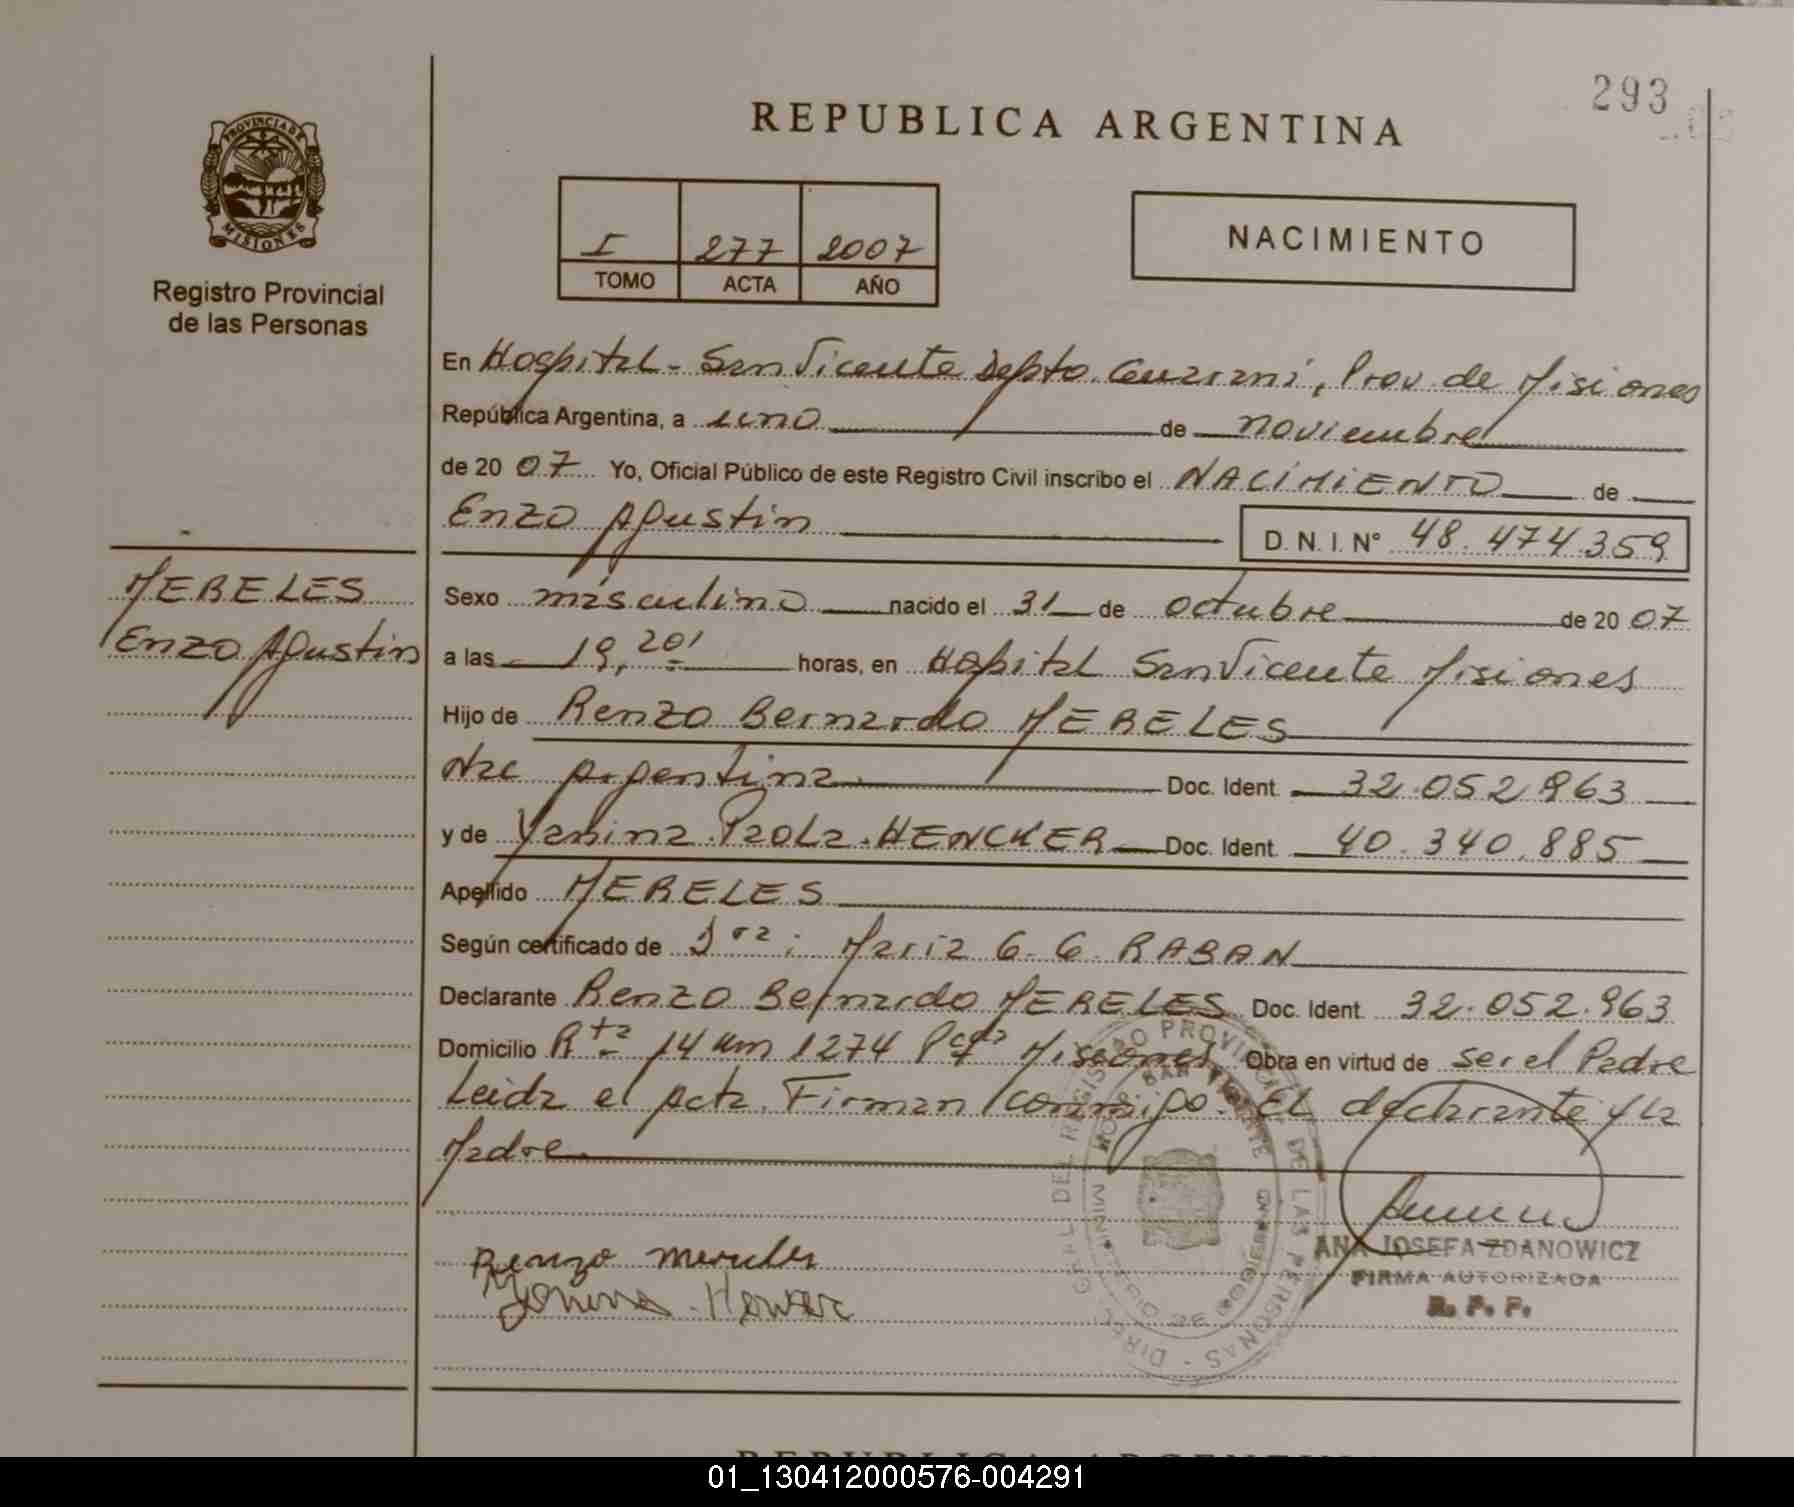 293
REPUBLICA ARGENTINA
PROVINCIA DE MISIONES
Registro Provincial
de las Personas
I 277 2007
TOMO ACTA AÑO
NACIMIENTO
En Hospital - San Vicente Depto. Guarani, Prov. de Misiones
República Argentina, a uno de noviembre
de 2007 Yo, Oficial Público de este Registro Civil inscribo el NACIMIENTO de
Enzo Agustin D.N.I. Nº 48.474.359
MERELES
Enzo Agustin
Sexo masculino nacido el 31 de octubre de 2007
a las 19,20' horas, en Hospital San Vicente Misiones
Hijo de Renzo Bernardo MERELES
Nac Argentina. Doc. Ident. 32.052.963
y de Yanina Paola HENCKER Doc. Ident. 40.340.885
Apellido MERELES
Según certificado de Dra: Maria G. G. RABAN
Declarante Renzo Bernardo MERELES Doc. Ident. 32.052.963
Domicilio Rta 14 km 1274 Misiones Obra en virtud de ser el Padre
Leida el acta. Firman conmigo. El declarante y la
Madre.
Renzo Mereles
ANA JOSEFA ZDANOWICZ
FIRMA AUTORIZADA
R. P. P.
REPUBLICA ARGENTINA
01_130412000576-004291